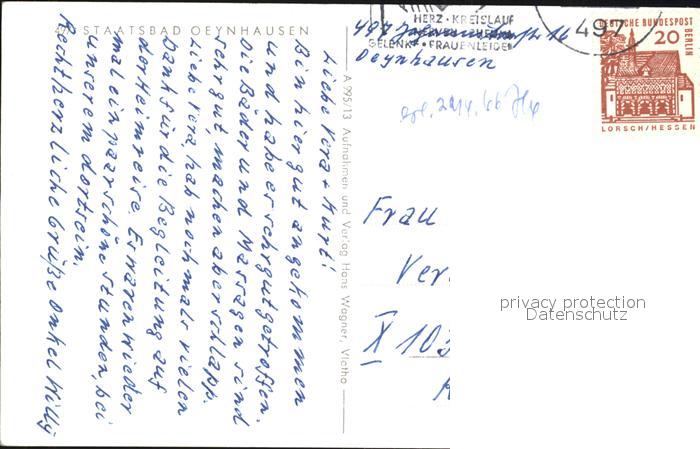 497 STAATSBAD OEYNHAUSEN
Liebe Vera + Kurt!
Bin hier gut angekommen
und habe es sehr gut getroffen.
Die Bäder und Massagen sind
sehr gut, machen aber schlapp.
Liebe Vera, hab nochmals vielen
Dank für die Begleitung auf
der Heimreise. Es waren wieder
mal ein paar schöne Stunden, bei
unserem dortsein.
Recht herzliche Grüße Onkel Willy
A 995/13 Aufnahmen und Verlag Hans Wagner, Vlotho
HERZ·KREISLAUF
GELENK·FRAUENLEIDEN
497
16
Oeynhausen
DEUTSCHE BUNDESPOST
BERLIN
20
LORSCH/HESSEN
Frau
Ver
X 103
privacy protection
Datenschutz